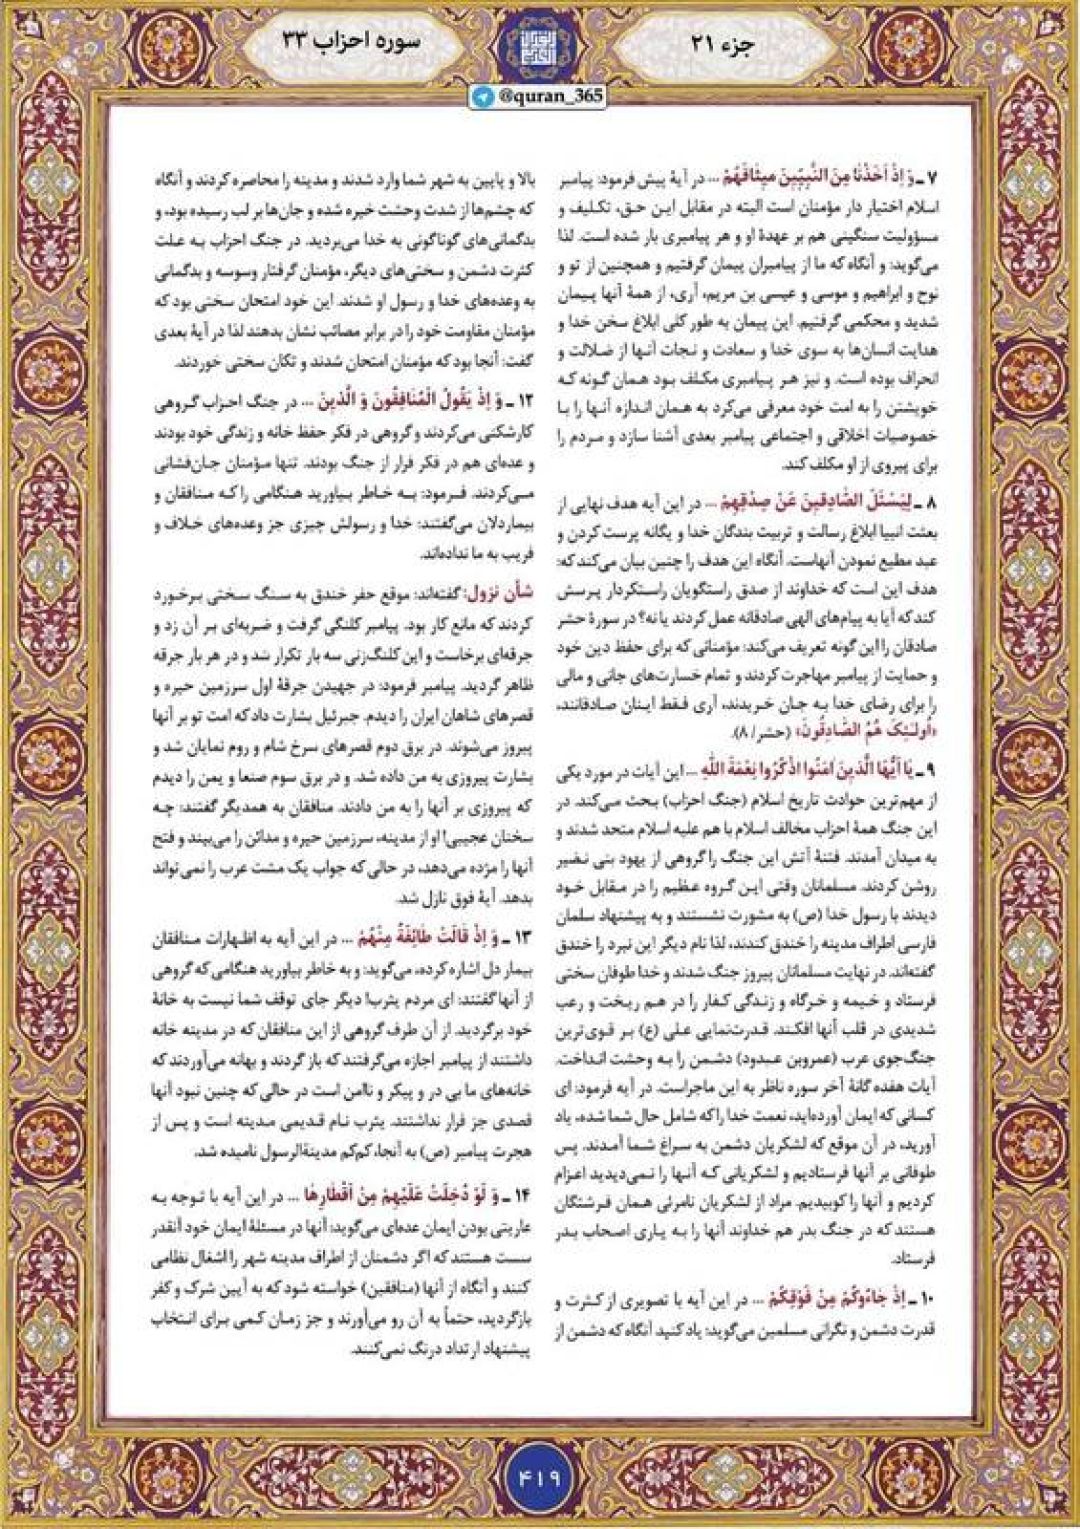 جزء ۲۱
سوره احزاب ۳۳
@quran_365
۷ـ وَ إِذْ أَخَذْنَا مِنَ النَّبِيِّينَ مِيثَاقَهُمْ ... در آیهٔ پیش فرمود: پیامبر
اسلام اختیار دار مؤمنان است البته در مقابل این حق، تکلیف و
مسؤولیت سنگینی هم بر عهدهٔ او و هر پیامبری بار شده است. لذا
می‌گوید: و آنگاه که ما از پیامبران پیمان گرفتیم و همچنین از تو و
نوح و ابراهیم و موسی و عیسی بن مریم، آری، از همهٔ آنها پیمان
شدید و محکمی گرفتیم. این پیمان به طور کلی ابلاغ سخن خدا و
هدایت انسان‌ها به سوی خدا و سعادت و نجات آنها از ضلالت و
انحراف بوده است. و نیز هر پیامبری مکلف بود همان گونه که
خویشتن را به امت خود معرفی می‌کرد به همان اندازه آنها را با
خصوصیات اخلاقی و اجتماعی پیامبر بعدی آشنا سازد و مردم را
برای پیروی از او مکلف کند.
۸ ـ لِيَسْئَلَ الصَّادِقِينَ عَنْ صِدْقِهِمْ ... در این آیه هدف نهایی از
بعثت انبیا ابلاغ رسالت و تربیت بندگان خدا و یگانه پرست کردن و
عبد مطیع نمودن آنهاست. آنگاه این هدف را چنین بیان می‌کند که:
هدف این است که خداوند از صدق راستگویان راستکردار پرسش
کند که آیا به پیام‌های الهی صادقانه عمل کردند یا نه؟ در سورهٔ حشر
صادقان را این گونه تعریف می‌کند: مؤمنانی که برای حفظ دین خود
و حمایت از پیامبر مهاجرت کردند و تمام خسارت‌های جانی و مالی
را برای رضای خدا به جان خریدند، آری فقط اینان صادقانند،
«أُولَـٰئِكَ هُمُ الصَّادِقُونَ» (حشر/ ۸).
۹ ـ يَا أَيُّهَا الَّذِينَ آمَنُوا اذْكُرُوا نِعْمَةَ اللَّهِ ... این آیات در مورد یکی
از مهم‌ترین حوادث تاریخ اسلام (جنگ احزاب) بحث می‌کند. در
این جنگ همهٔ احزاب مخالف اسلام با هم علیه اسلام متحد شدند و
به میدان آمدند. فتنهٔ آتش این جنگ را گروهی از یهود بنی نضیر
روشن کردند. مسلمانان وقتی این گروه عظیم را در مقابل خود
دیدند با رسول خدا (ص) به مشورت نشستند و به پیشنهاد سلمان
فارسی اطراف مدینه را خندق کندند، لذا نام دیگر این نبرد را خندق
گفته‌اند. در نهایت مسلمانان پیروز جنگ شدند و خدا طوفان سختی
فرستاد و خیمه و خرگاه و زندگی کفار را در هم ریخت و رعب
شدیدی در قلب آنها افکند. قدرت‌نمایی علی (ع) بر قوی‌ترین
جنگ‌جوی عرب (عمروبن عبدود) دشمن را به وحشت انداخت.
آیات هفده گانهٔ آخر سوره ناظر به این ماجراست. در آیه فرمود: ای
کسانی که ایمان آورده‌اید، نعمت خدا را که شامل حال شما شده، یاد
آورید، در آن موقع که لشکریان دشمن به سراغ شما آمدند. پس
طوفانی بر آنها فرستادیم و لشکریانی که آنها را نمی‌دیدید اعزام
کردیم و آنها را کوبیدیم. مراد از لشکریان نامرئی همان فرشتگان
هستند که در جنگ بدر هم خداوند آنها را به یاری اصحاب بدر
فرستاد.
۱۰ ـ إِذْ جَاءُوكُمْ مِنْ فَوْقِكُمْ ... در این آیه با تصویری از کثرت و
قدرت دشمن و نگرانی مسلمین می‌گوید: یاد کنید آنگاه که دشمن از
بالا و پایین به شهر شما وارد شدند و مدینه را محاصره کردند و آنگاه
که چشم‌ها از شدت وحشت خیره شده و جان‌ها بر لب رسیده بود، و
بدگمانی‌های گوناگونی به خدا می‌بردید. در جنگ احزاب به علت
کثرت دشمن و سختی‌های دیگر، مؤمنان گرفتار وسوسه و بدگمانی
به وعده‌های خدا و رسول او شدند. این خود امتحان سختی بود که
مؤمنان مقاومت خود را در برابر مصائب نشان بدهند لذا در آیهٔ بعدی
گفت: آنجا بود که مؤمنان امتحان شدند و تکان سختی خوردند.
۱۲ ـ وَ إِذْ يَقُولُ الْمُنَافِقُونَ وَ الَّذِينَ ... در جنگ احزاب گروهی
کارشکنی می‌کردند و گروهی در فکر حفظ خانه و زندگی خود بودند
و عده‌ای هم در فکر فرار از جنگ بودند. تنها مؤمنان جان‌فشانی
می‌کردند. فرمود: به خاطر بیاورید هنگامی را که منافقان و
بیماردلان می‌گفتند: خدا و رسولش چیزی جز وعده‌های خلاف و
فریب به ما نداده‌اند.
شأن نزول: گفته‌اند: موقع حفر خندق به سنگ سختی برخورد
کردند که مانع کار بود. پیامبر کلنگی گرفت و ضربه‌ای بر آن زد و
جرقه‌ای برخاست و این کلنگ‌زنی سه بار تکرار شد و در هر بار جرقه
ظاهر گردید. پیامبر فرمود: در جهیدن جرقهٔ اول سرزمین حیره و
قصرهای شاهان ایران را دیدم. جبرئیل بشارت داد که امت تو بر آنها
پیروز می‌شوند. در برق دوم قصرهای سرخ شام و روم نمایان شد و
بشارت پیروزی به من داده شد. و در برق سوم صنعا و یمن را دیدم
که پیروزی بر آنها را به من دادند. منافقان به همدیگر گفتند: چه
سخنان عجیبی! او از مدینه، سرزمین حیره و مدائن را می‌بیند و فتح
آنها را مژده می‌دهد، در حالی که جواب یک مشت عرب را نمی‌تواند
بدهد. آیهٔ فوق نازل شد.
۱۳ ـ وَ إِذْ قَالَتْ طَائِفَةٌ مِنْهُمْ ... در این آیه به اظهارات منافقان
بیمار دل اشاره کرده، می‌گوید: و به خاطر بیاورید هنگامی که گروهی
از آنها گفتند: ای مردم یثرب! دیگر جای توقف شما نیست به خانهٔ
خود برگردید. از آن طرف گروهی از این منافقان که در مدینه خانه
داشتند از پیامبر اجازه می‌گرفتند که باز گردند و بهانه می‌آوردند که
خانه‌های ما بی در و پیکر و ناامن است در حالی که چنین نبود آنها
قصدی جز فرار نداشتند. یثرب نام قدیمی مدینه است و پس از
هجرت پیامبر (ص) به آنجا، کم‌کم مدینةالرسول نامیده شد.
۱۴ ـ وَ لَوْ دُخِلَتْ عَلَيْهِمْ مِنْ أَقْطَارِهَا ... در این آیه با توجه به
عاریتی بودن ایمان عده‌ای می‌گوید: آنها در مسئلهٔ ایمان خود آنقدر
سست هستند که اگر دشمنان از اطراف مدینه شهر را اشغال نظامی
کنند و آنگاه از آنها (منافقین) خواسته شود که به آیین شرک و کفر
بازگردید، حتماً به آن رو می‌آورند و جز زمان کمی برای انتخاب
پیشنهاد ارتداد درنگ نمی‌کنند.
۴۱۹